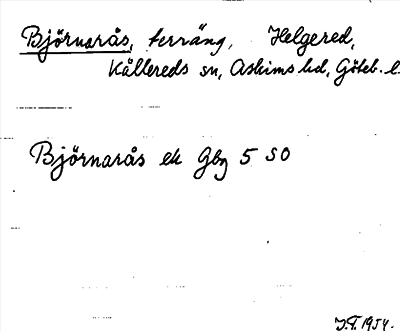 Björnarås, terräng, Helgered,
Kållereds sn, Askims hd, Göteb. l.
Björnarås ek Gbg 5 SO
J.F. 1954.